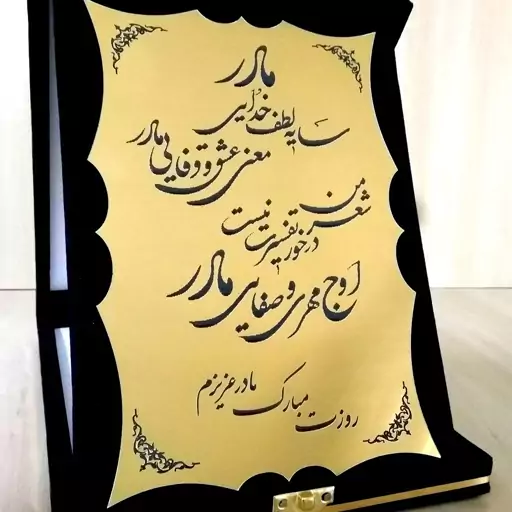 مادر
سایه لطف خدایی
معنی عشق و وفایی مادر
شعر من
درخور تفسیرت نیست
اوج مهری و صفایی مادر
روزت مبارک مادر عزیزم